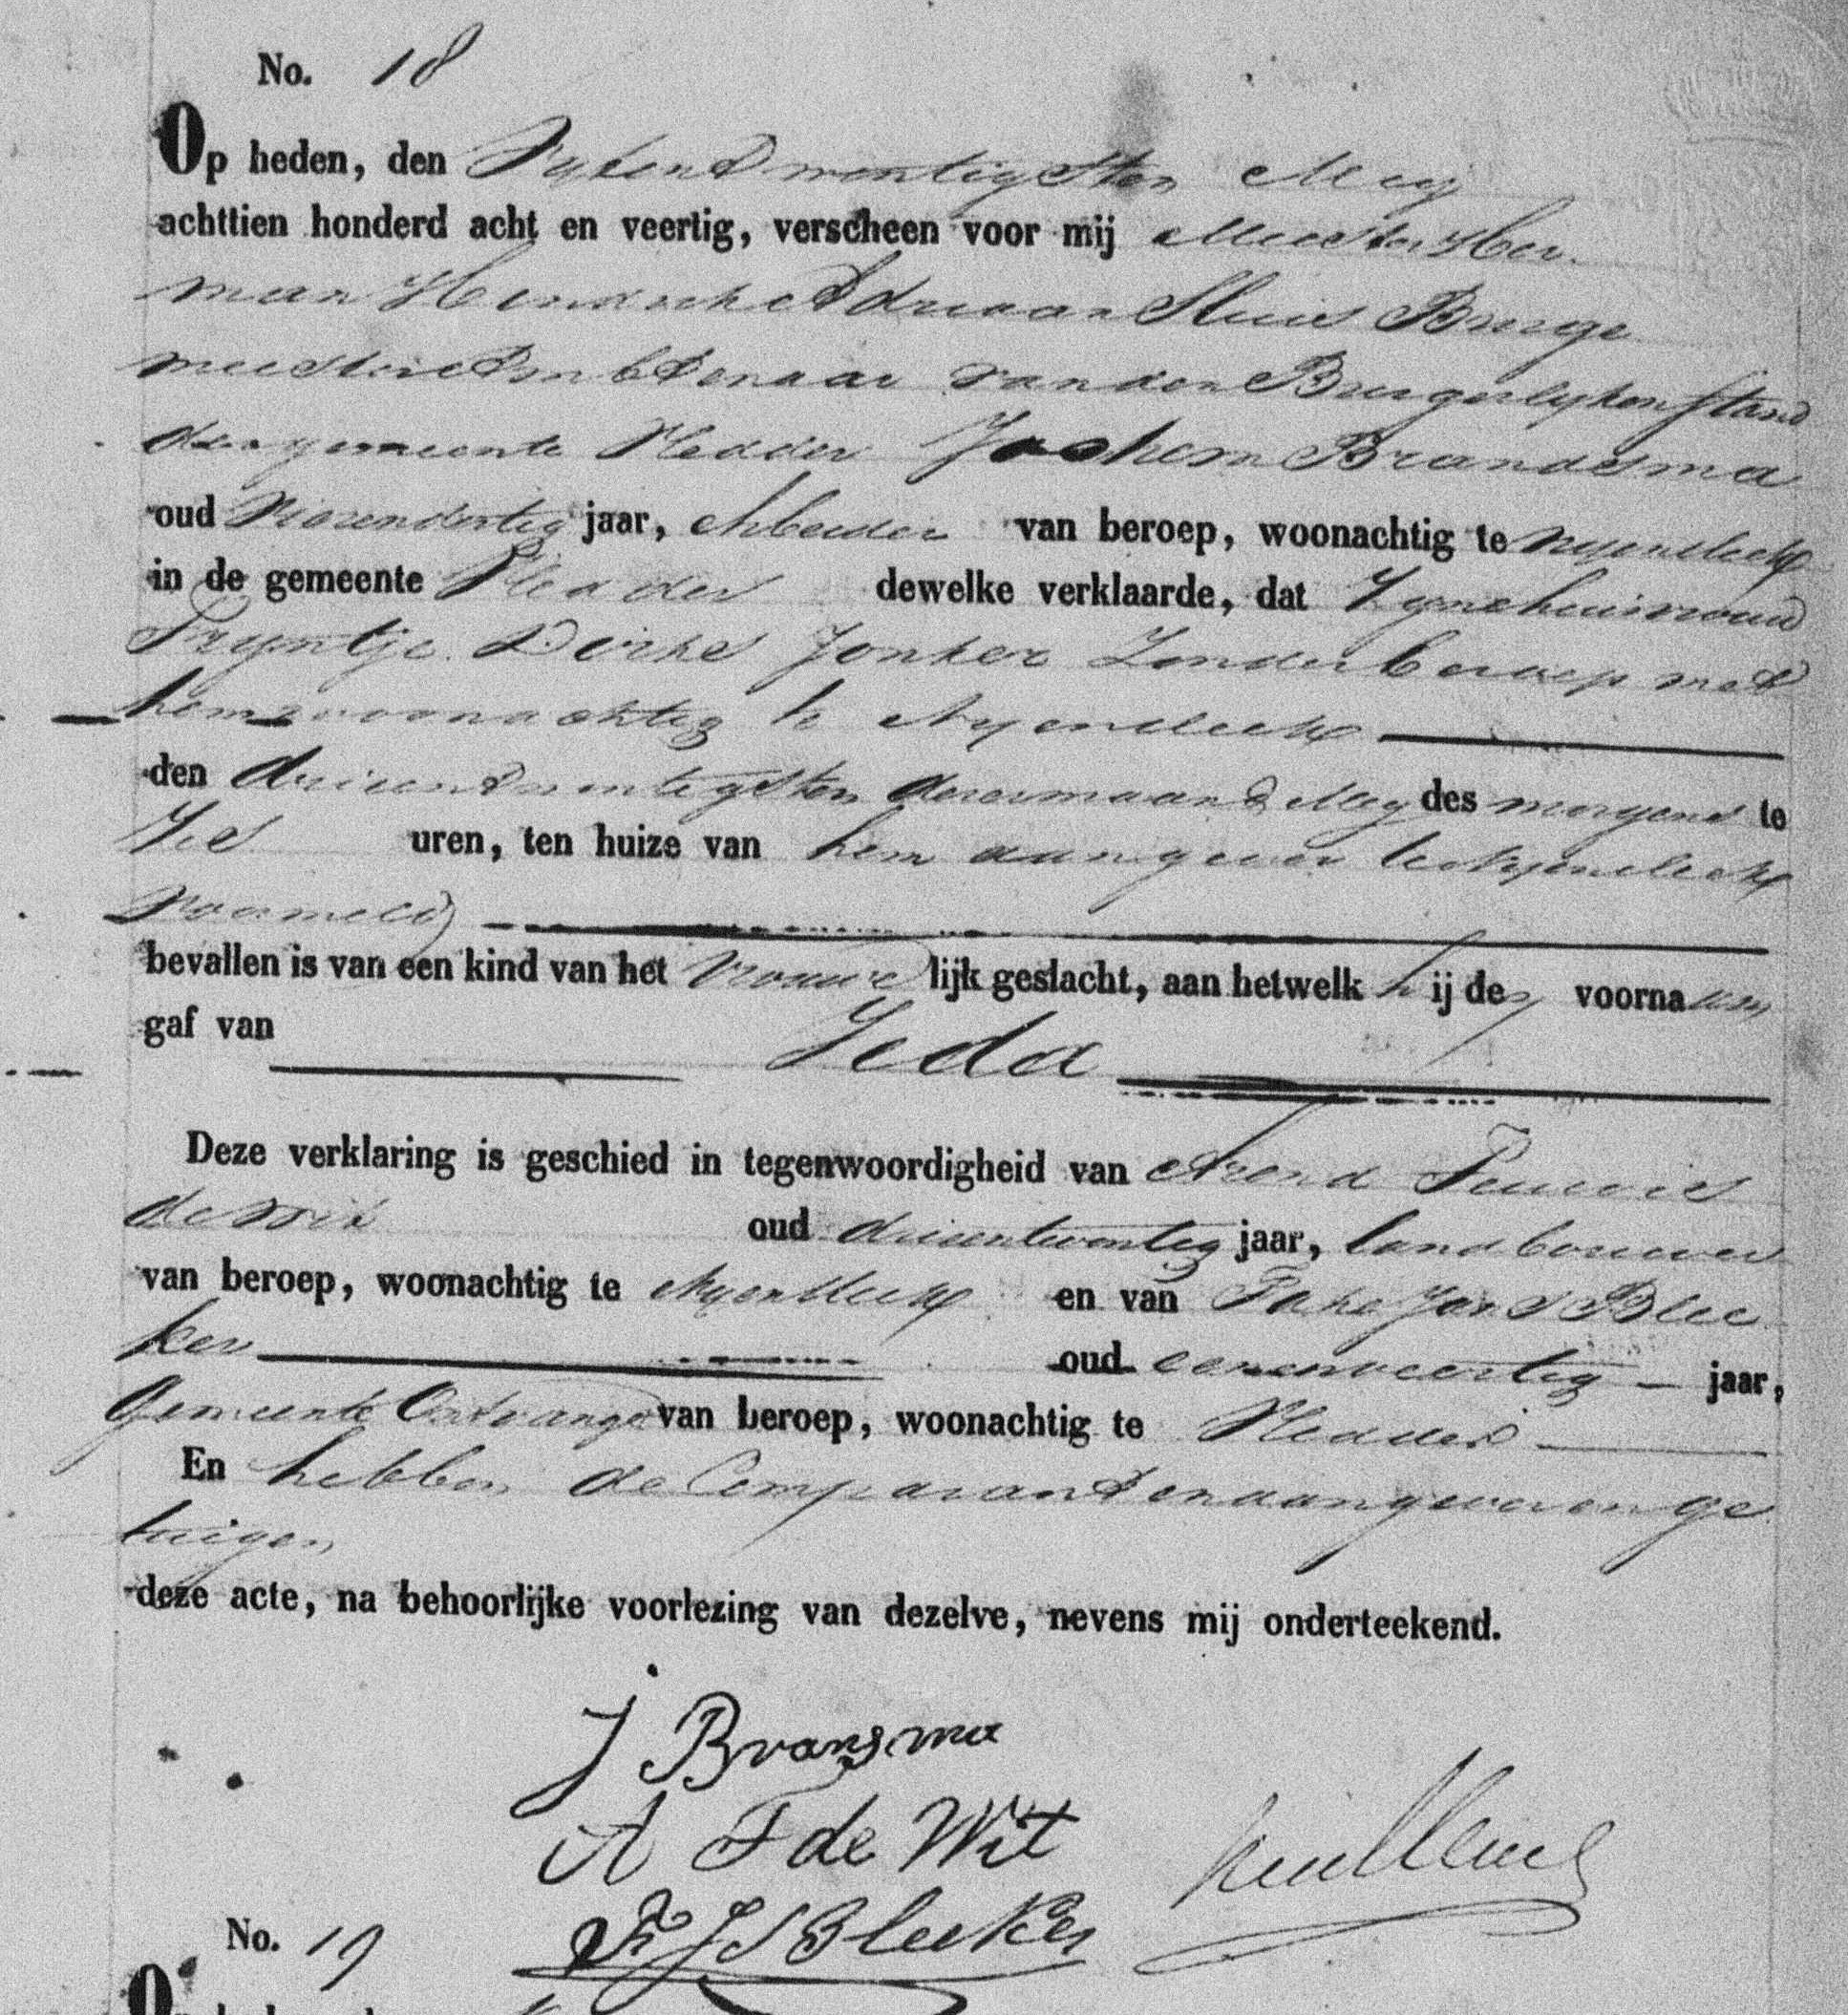 No. 18
Op heden, den Vyfentwentigsten Mey
achttien honderd acht en veertig, verscheen voor mij Meester Her-
man Hendrik Adriaan Sluis Burge
meester Ambtenaar van den Burgerlyken stand
der gemeente Hedder Jochem Brandsma
oud Negenendertig jaar, Arbeider van beroep, woonachtig te Nyensleek
in de gemeente Hedder dewelke verklaarde, dat Zyne huisvrouw
Tryntje Dirks Jonker Zonder beroep met
hem woonachtig te Nyensleek
den drieentwentigsten dezer maand Mey des morgens te
Zes uren, ten huize van hem aangever te Nyensleek
voormeld
bevallen is van een kind van het vrouwelijk geslacht, aan hetwelk hij den voornaam
gaf van Jeda
Deze verklaring is geschied in tegenwoordigheid van Arend
de Wit oud drieentwentig jaar, landbouwer
van beroep, woonachtig te Nyensleek en van Fake Jans Blee
ker oud eenenveertig jaar,
Gemeente Ontvanger van beroep, woonachtig te Hedder
En hebben de Comparant en aangever en ge
tuigen
deze acte, na behoorlijke voorlezing van dezelve, nevens mij onderteekend.
J Bransma
A F de Wit
F J S Bleeker
No. 19